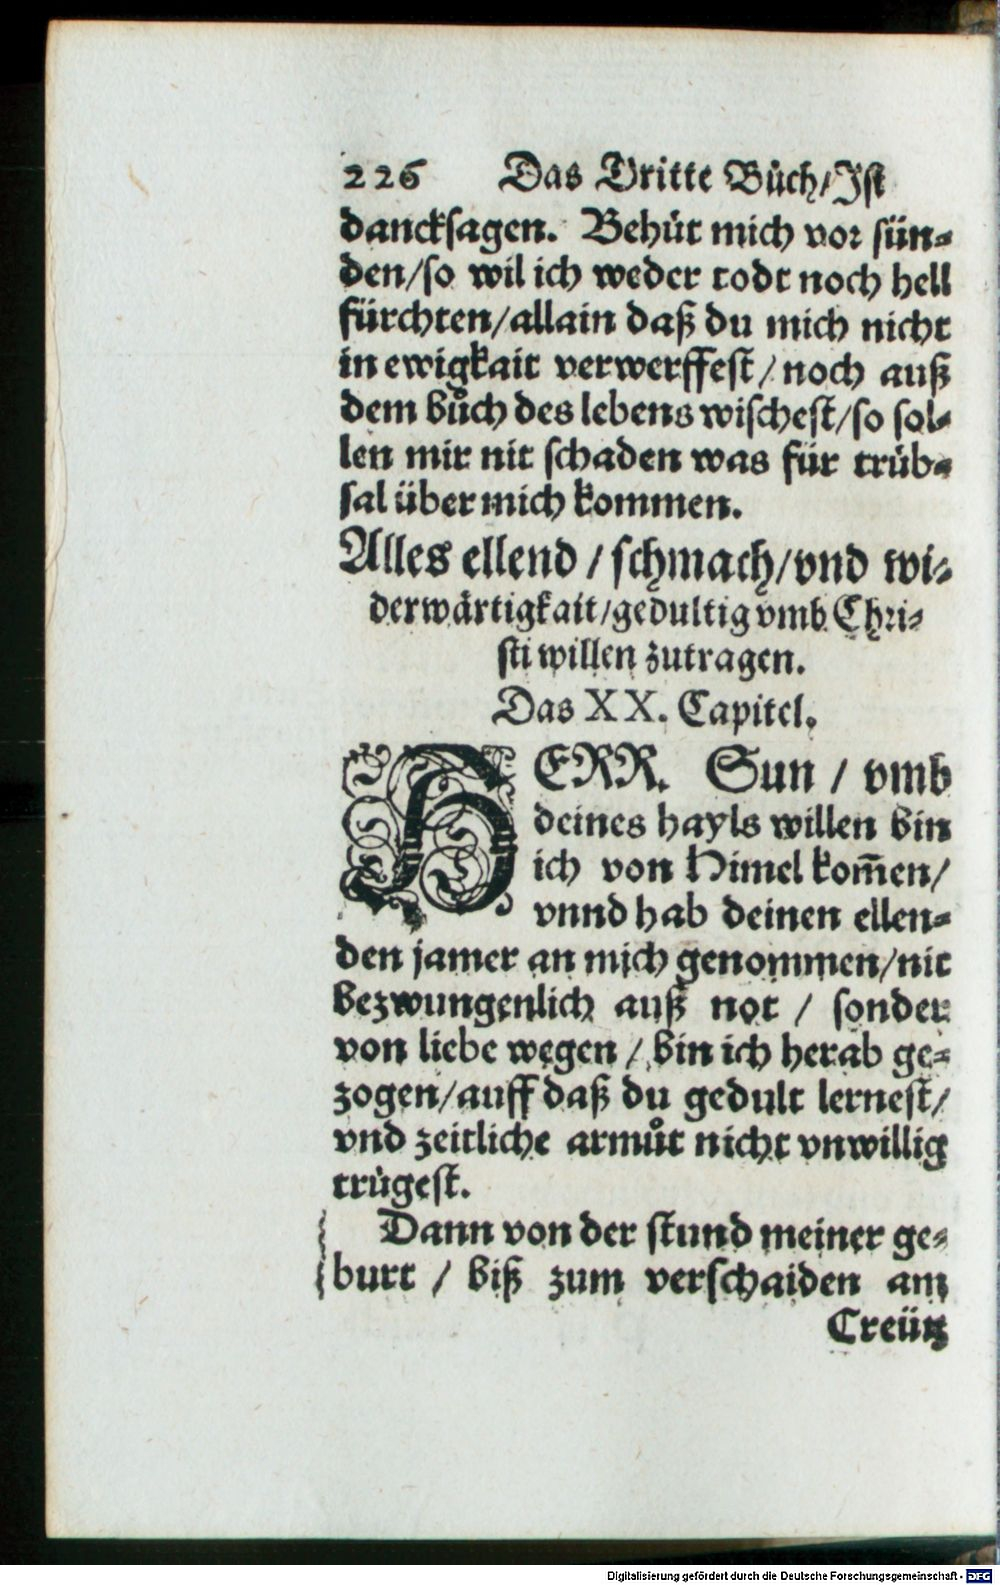 226 Das Dritte Büch/Ist
dancksagen. Behüt mich vor sün⸗
den/so wil ich weder todt noch hell
fürchten/allain daß du mich nicht
in ewigkait verwerffest/noch auß
dem bůch des lebens wischest/so sol⸗
len mir nit schaden was für trüb⸗
sal über mich kommen.
Alles ellend/schmach/vnd wi⸗
derwärtigkait/gedultig vmb Chri⸗
sti willen zutragen.
Das XX. Capitel.
HERR. Sun/vmb
deines hayls willen bin
ich von Himel kom̄en/
vnnd hab deinen ellen⸗
den jamer an mich genommen/nit
bezwungenlich auß not/sonder
von liebe wegen/bin ich herab ge⸗
zogen/auff daß du gedult lernest/
vnd zeitliche armůt nicht vnwillig
trügest.
Dann von der stund meiner ge⸗
burt/biß zum verschaiden am
Creütz
Digitalisierung gefördert durch die Deutsche Forschungsgemeinschaft - DFG